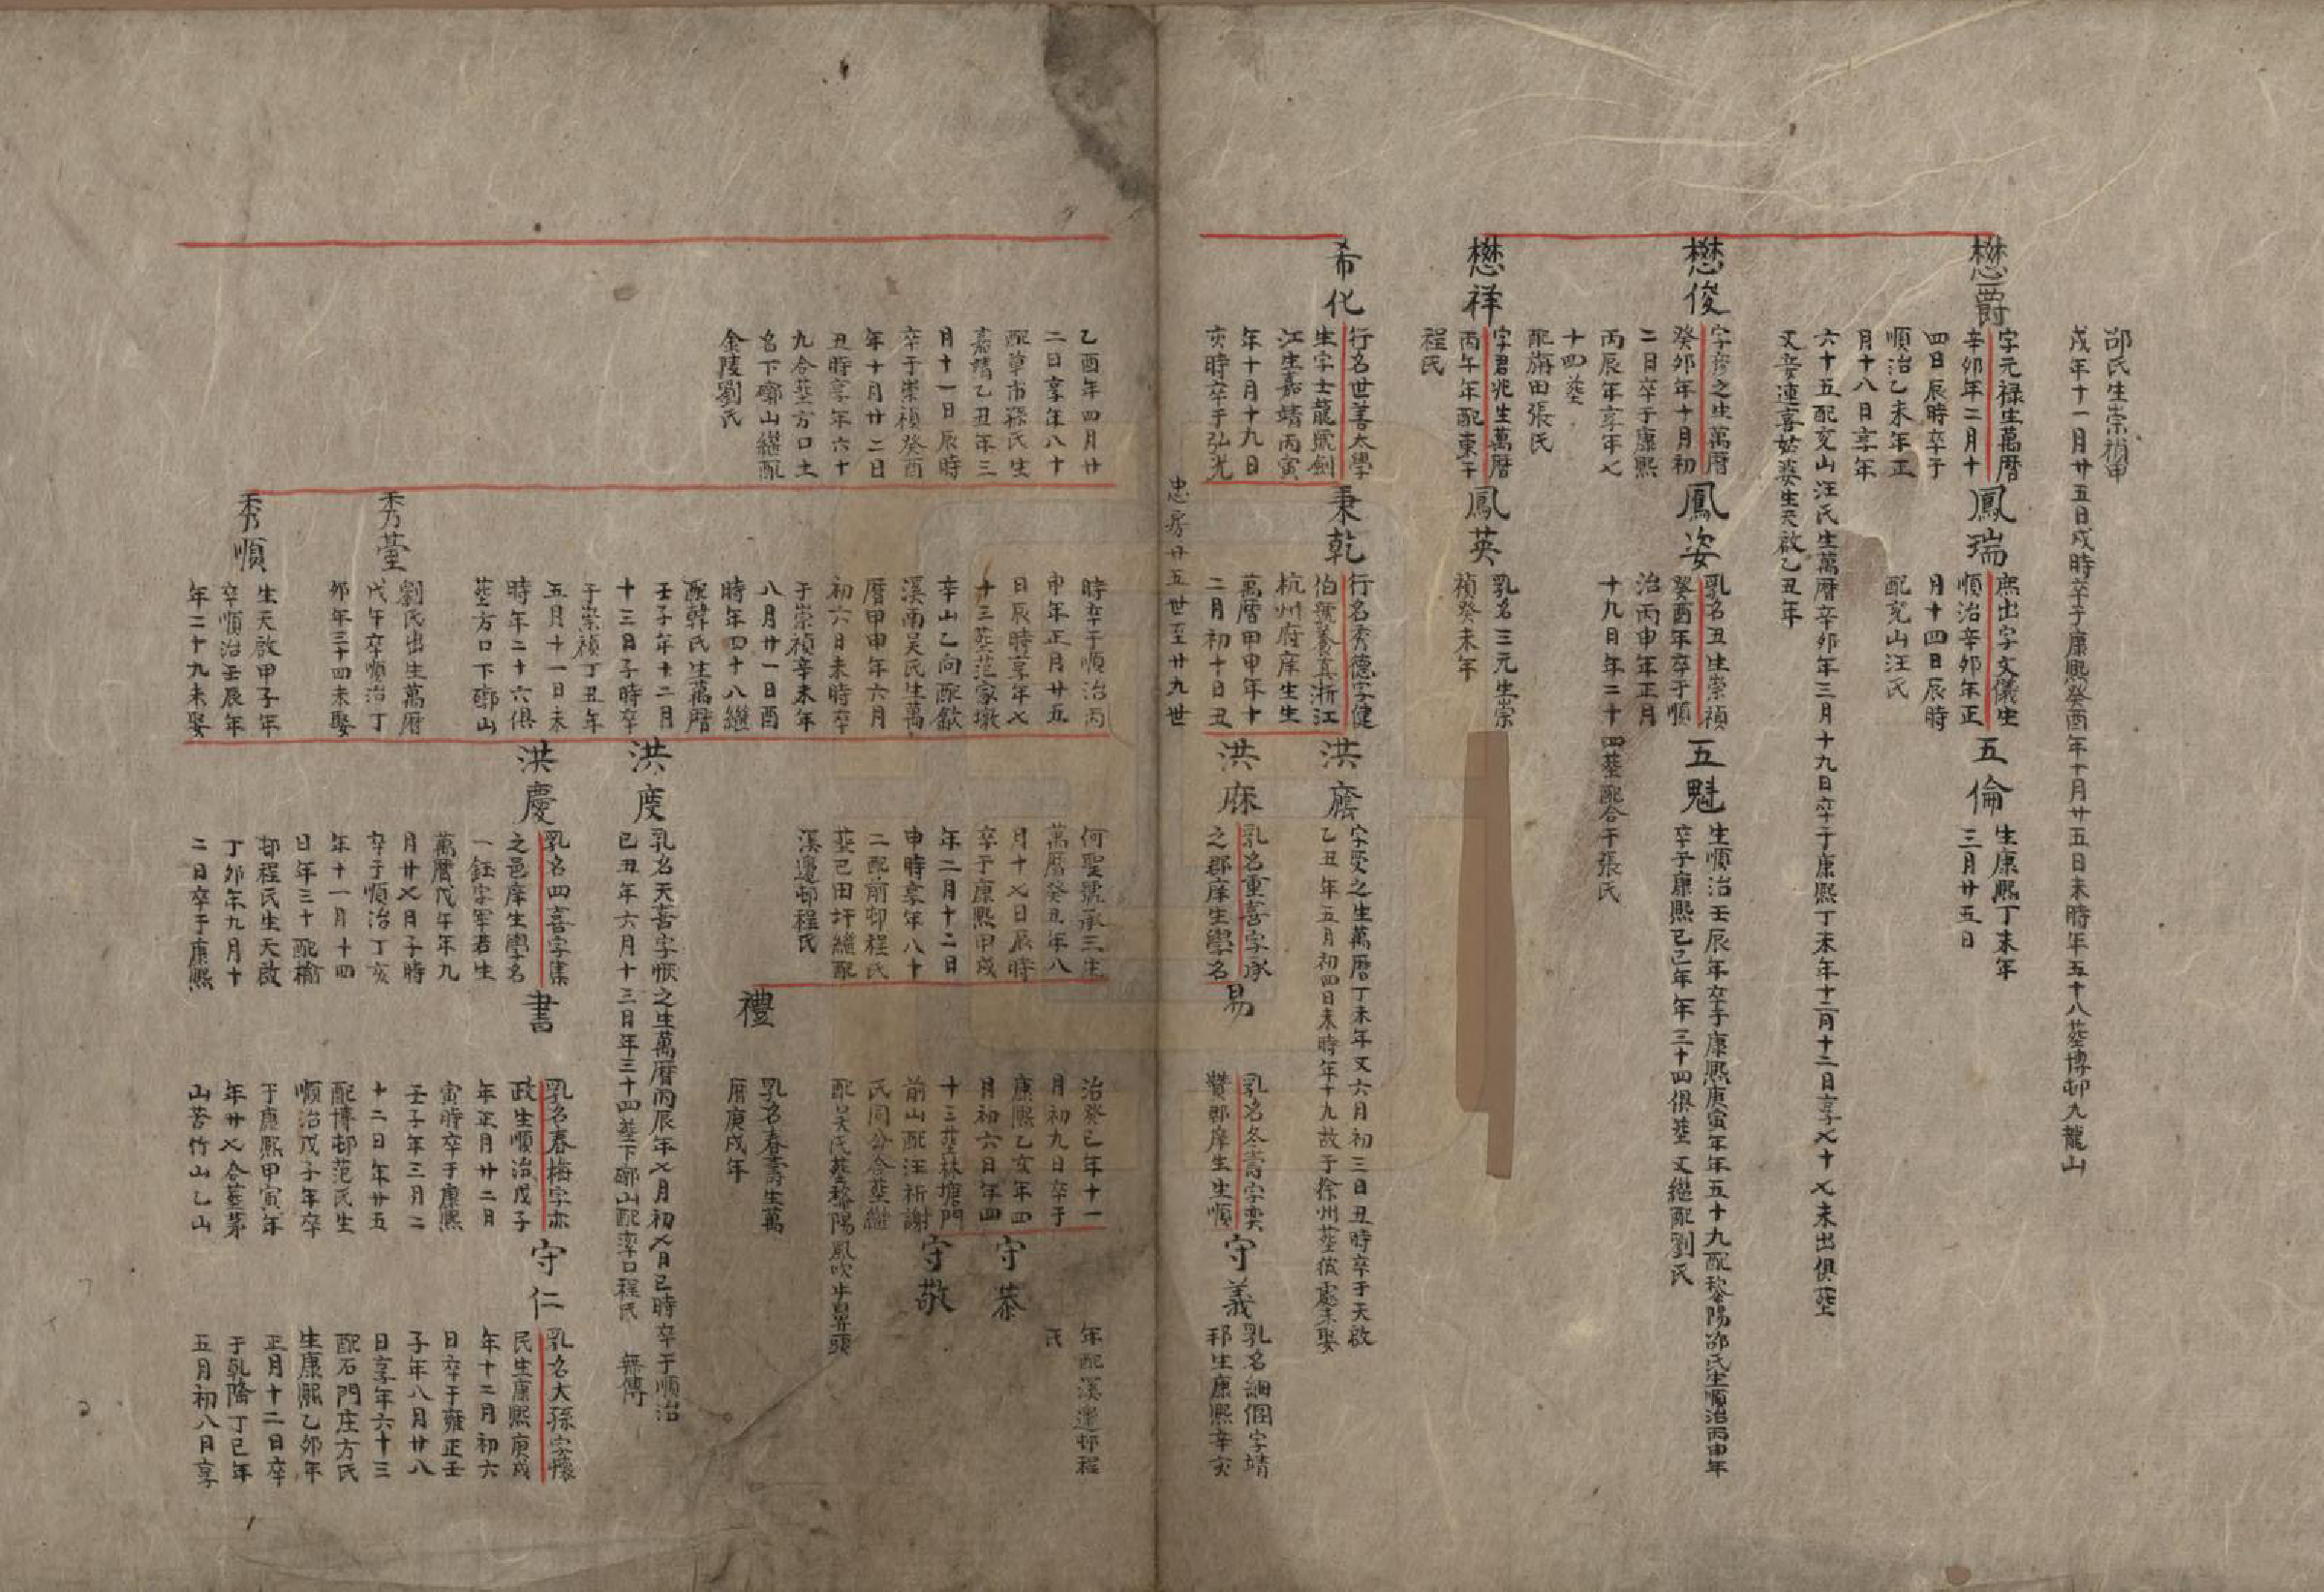 邵氏生崇禎甲
戌年十一月廿五日戌時卒于康熙癸酉年十月廿五日未時年五十八塟博邨九龍山
懋爵
字元禄生萬曆
辛卯年二月十
四日辰時卒于
順治乙未年正
月十八日享年
六十五配兗山汪氏生萬曆辛卯年三月十九日卒于康熙丁未年十二月十二日享七十七未出俱塟
又妾連喜姑婆生天啟乙丑年
鳳瑞
庶出字文儀生
順治辛卯年正
月十四日辰時
配兗山汪氏
五倫
生康熙丁未年
三月廿五日
懋俊
字彥之生萬曆
癸卯年十月初
二日卒于康熙
丙辰年享年七
十四塟
配旃田張氏
鳳姿
乳名丑生崇禎
癸酉年卒于順
治丙申年正月
十九日年二十四塟配合干張氏
五魁
生順治壬辰年卒于康熙庚寅年年五十九配黎陽邵氏生順治丙申年
卒于康熙己巳年年三十四俱塟又繼配劉氏
懋祥
字君兆生萬曆
丙午年配東干
程氏
鳳英
乳名三元生崇
禎癸未年
希化
行名世善太學
生字士龍號劍
江生嘉靖丙寅
年十月十九日
亥時卒于弘光
秉乾
行名秀德字健
伯號養真浙江
杭州府庠生生
萬曆甲申年十
二月初十日丑
洪𢊍
字受之生萬曆丁未年又六月初三日丑時卒于天啟
乙丑年五月初四日未時年十九故于徐州塟彼處未娶
洪庥
乳名重喜字承
之郡庠生學名
易
乳名冬壽字奕
贊郡庠生生順
守義
乳名細個字靖
邦生康熙辛亥
忠房廿五世至廿九世
乙酉年四月廿
二日享年八十
配草市孫氏生
嘉靖乙丑年三
月十一日辰時
卒于崇禎癸酉
年十月廿二日
丑時享年六十
九合塟方口土
名下䣊山繼配
金陵劉氏
時卒于順治丙
申年正月廿五
日辰時享年七
十三塟范家墩
辛山乙向配歙
溪南吴氏生萬
曆甲申年六月
初六日未時卒
于崇禎辛未年
八月廿一日酉
時年四十八繼
配韓氏生萬曆
壬子年十二月
十三日子時卒
于崇禎丁丑年
五月十一日未
時年二十六俱
塟方口下䣊山
秀蓥
劉氏出生萬曆
戊午卒順治丁
卯年三十四未娶
秀順
生天啟甲子年
卒順治壬辰年
年二十九未娶
何聖號承三生
萬曆癸丑年八
月十七日辰時
卒于康熙甲戌
年二月十二日
申時享年八十
二配前邨程氏
塟己田圩繼配
溪邊邨程氏
治癸巳年十一
月初九日卒于
康熙乙亥年四
月初六日年四
十三塟林塘門
前山配汪祈謝
氏同公合塟繼
配吴氏塟黎陽鳳吹牛鼻頭
守恭
年配溪邊邨程
氏
守敬
禮
乳名春壽生萬
曆庚戌年
洪度
乳名天喜字恢之生萬曆丙辰年七月初七日巳時卒于順治
己丑年六月十三日年三十四塟下䣊山配率口程氏 無傳
洪慶
乳名四喜字集
之邑庠生學名
一鈺字軍若生
萬曆戊午年九
月廿七日子時
卒于順治丁亥
年十一月十四
日年三十配榆
邨程氏生天啟
丁卯年九月十
二日卒于康熙
書
乳名春梅字亦
政生順治戊子
年正月廿二日
寅時卒于康熙
壬子年三月二
十二日年廿五
配博邨范氏生
順治戊子年卒
于康熙甲寅年
年廿七合塟茅
山苦竹山乙山
守仁
乳名大孫字懷
民生康熙庚戌
年十二月初六
日卒于雍正壬
子年八月廿八
日享年六十三
配石門庄方氏
生康熙乙卯年
正月十二日卒
于乾隆丁巳年
五月初八日享